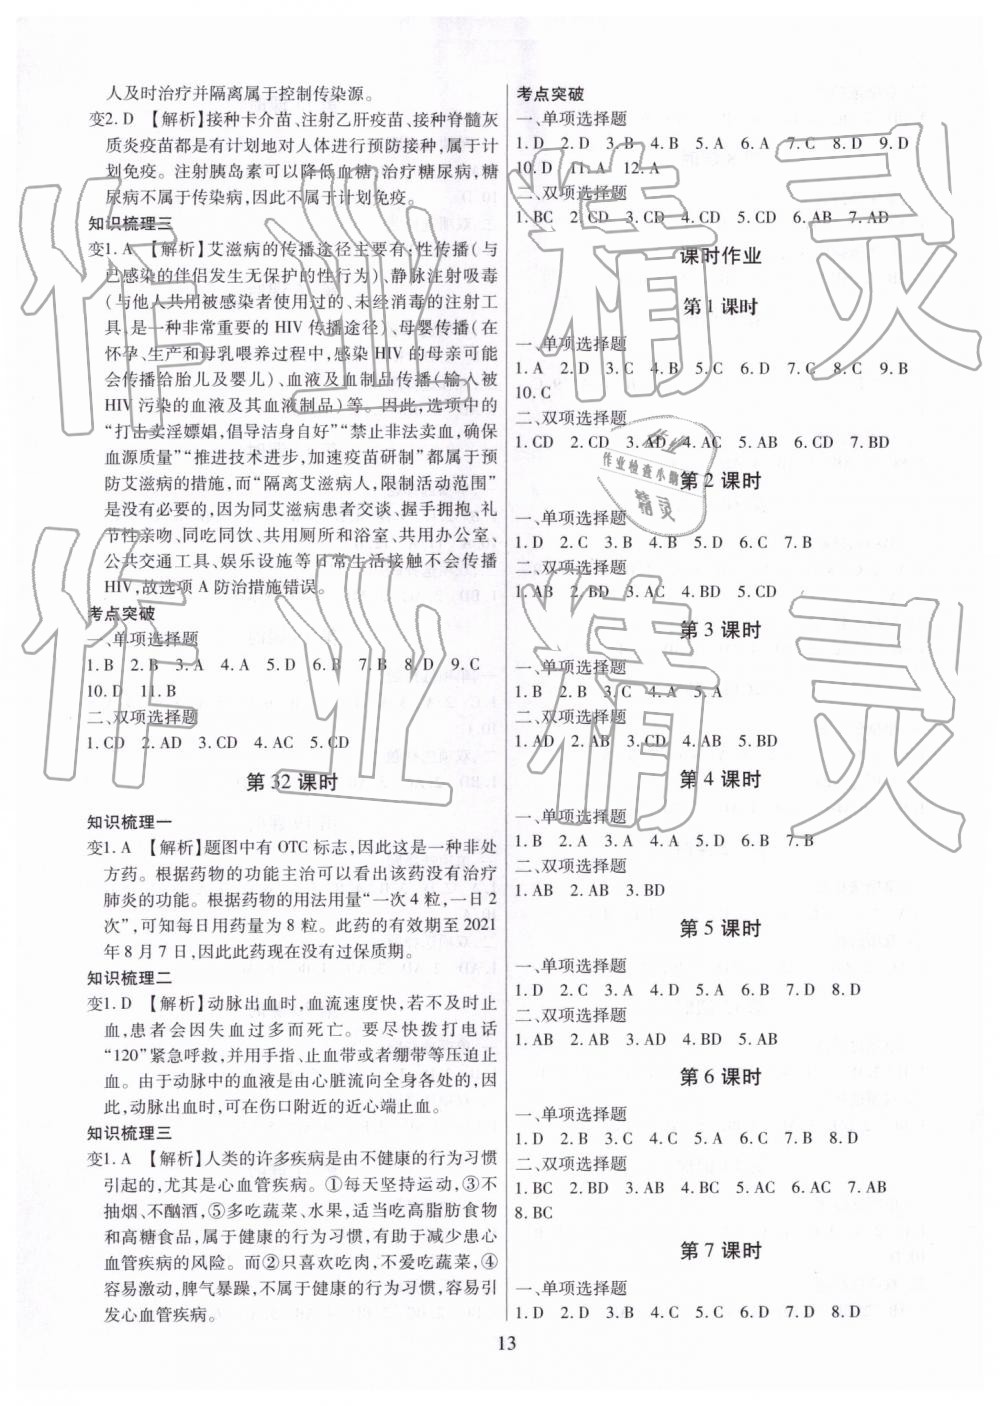 人及时治疗并隔离属于控制传染源。
变2. D 【解析】接种卡介苗、注射乙肝疫苗、接种脊髓灰
质炎疫苗都是有计划地对人体进行预防接种,属于计
划免疫。注射胰岛素可以降低血糖,治疗糖尿病,糖
尿病不属于传染病,因此不属于计划免疫。
知识梳理三
变1. A 【解析】艾滋病的传播途径主要有:性传播(与
已感染的伴侣发生无保护的性行为)、静脉注射吸毒
(与他人共用被感染者使用过的、未经消毒的注射工
具,是一种非常重要的 HIV 传播途径)、母婴传播(在
怀孕、生产和母乳喂养过程中,感染 HIV 的母亲可能
会传播给胎儿及婴儿)、血液及血制品传播(输入被
HIV 污染的血液及其血液制品)等。因此,选项中的
“打击卖淫嫖娼,倡导洁身自好”“禁止非法卖血,确保
血源质量”“推进技术进步,加速疫苗研制”都属于预
防艾滋病的措施,而“隔离艾滋病人,限制活动范围”
是没有必要的,因为同艾滋病患者交谈、握手拥抱、礼
节性亲吻、同吃同饮、共用厕所和浴室、共用办公室、
公共交通工具、娱乐设施等日常生活接触不会传播
HIV,故选项 A 防治措施错误。
考点突破
一、单项选择题
1. B 2. B 3. A 4. A 5. D 6. B 7. B 8. D 9. C
10. D 11. B
二、双项选择题
1. CD 2. AD 3. CD 4. AC 5. CD
第 32 课时
知识梳理一
变1. A 【解析】题图中有 OTC 标志,因此这是一种非处
方药。根据药物的功能主治可以看出该药没有治疗
肺炎的功能。根据药物的用法用量“一次 4 粒,一日 2
次”,可知每日用药量为 8 粒。此药的有效期至 2021
年 8 月 7 日,因此此药现在没有过保质期。
知识梳理二
变1. D 【解析】动脉出血时,血流速度快,若不及时止
血,患者会因失血过多而死亡。要尽快拨打电话
“120”紧急呼救,并用手指、止血带或者绷带等压迫止
血。由于动脉中的血液是由心脏流向全身各处的,因
此,动脉出血时,可在伤口附近的近心端止血。
知识梳理三
变1. A 【解析】人类的许多疾病是由不健康的行为习惯
引起的,尤其是心血管疾病。①每天坚持运动,③不
抽烟、不酗酒,⑤多吃蔬菜、水果,适当吃高脂肪食物
和高糖食品,属于健康的行为习惯,有助于减少患心
血管疾病的风险。而②只喜欢吃肉,不爱吃蔬菜,④
容易激动,脾气暴躁,不属于健康的行为习惯,容易引
发心血管疾病。
考点突破
一、单项选择题
1. D 2. D 3. B 4. B 5. A 6. A 7. C 8. D 9. D
10. D 11. A 12. A
二、双项选择题
1. BC 2. CD 3. CD 4. CD 5. CD 6. AB 7. AD
课时作业
第 1 课时
一、单项选择题
1. A 2. D 3. D 4. B 5. D 6. B 7. C 8. C 9. B
10. C
二、双项选择题
1. CD 2. CD 3. AD 4. AC 5. AB 6. CD 7. BD
第 2 课时
一、单项选择题
1. D 2. C 3. B 4. B 5. C 6. D 7. B
二、双项选择题
1. AB 2. BD 3. AC 4. BD 5. CD
第 3 课时
一、单项选择题
1. B 2. B 3. C 4. A 5. A
二、双项选择题
1. AD 2. AB 3. AC 4. AB 5. BD
第 4 课时
一、单项选择题
1. B 2. A 3. A 4. C 5. B 6. D 7. B
二、双项选择题
1. AB 2. AB 3. BD
第 5 课时
一、单项选择题
1. D 2. C 3. A 4. D 5. D 6. A 7. D
二、双项选择题
1. AB 2. AB 3. AB 4. BD 5. AB
第 6 课时
一、单项选择题
1. D 2. C 3. C 4. C 5. A 6. D 7. B 8. D
二、双项选择题
1. BC 2. BD 3. AB 4. AC 5. AC 6. AC 7. AB
8. BC
第 7 课时
一、单项选择题
1. D 2. D 3. B 4. D 5. C 6. D 7. B 8. D
13
作业精灵
作业精灵
作业
作业检查小
精灵